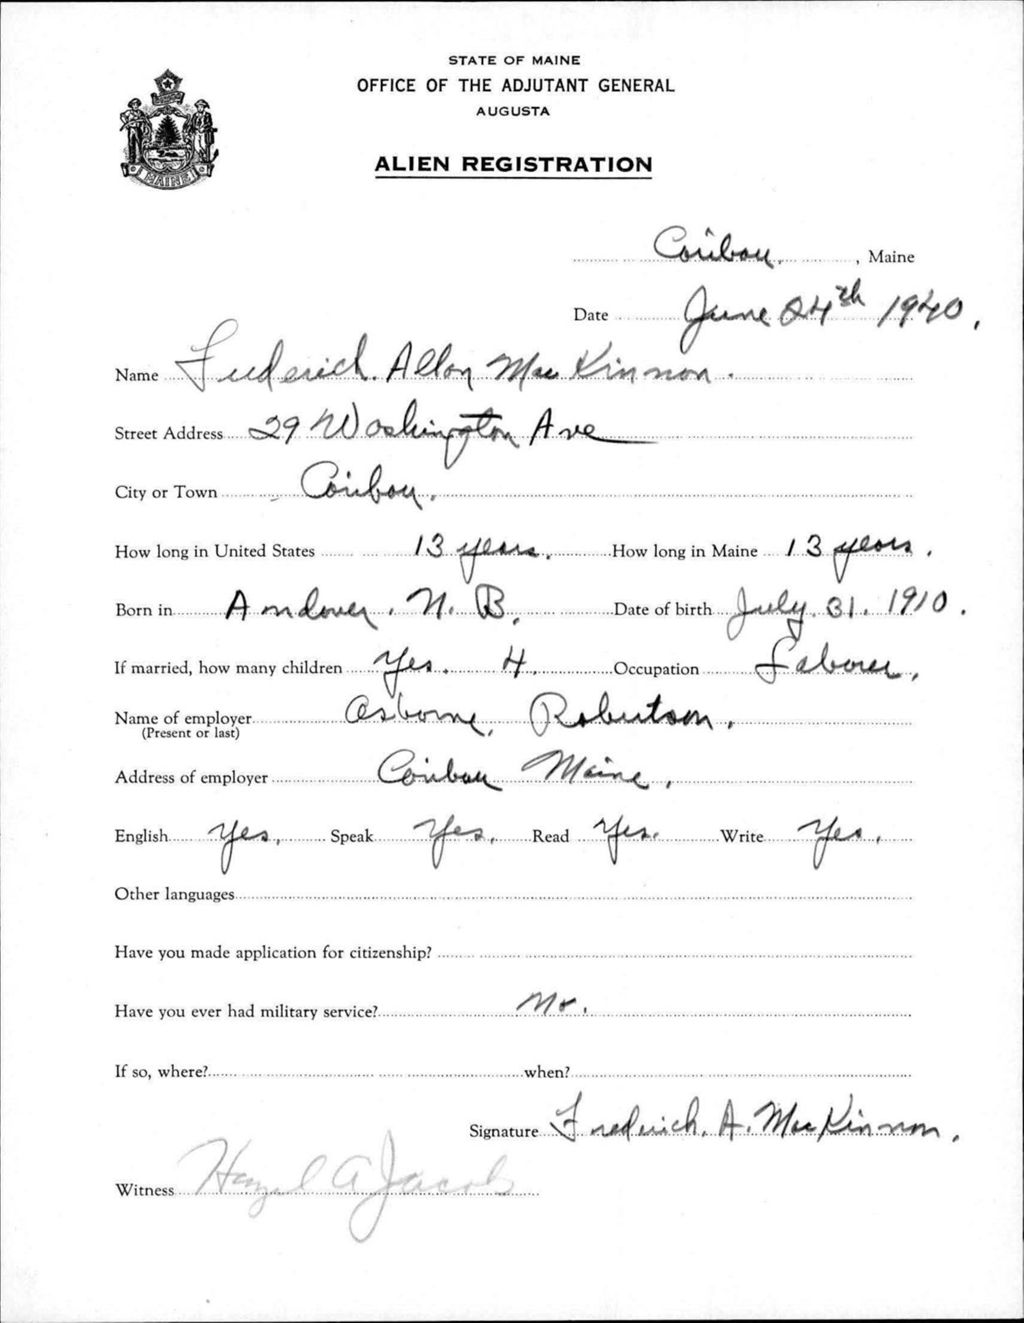 STATE OF MAINE
OFFICE OF THE ADJUTANT GENERAL
AUGUSTA
ALIEN REGISTRATION
MAINE
Caribou, , Maine
Date June 24th 1940.
Name Frederich Allan MacKinnon.
Street Address 29 Washington Ave
City or Town Caribou.
How long in United States 13 years. How long in Maine 13 years.
Born in Andover, N. B. Date of birth July 31. 1910.
If married, how many children Yes. 4. Occupation Laborer.
Name of employer Osborne Robertson.
(Present or last)
Address of employer Caribou Maine.
English Yes. Speak Yes. Read Yes. Write Yes.
Other languages
Have you made application for citizenship?
Have you ever had military service? No.
If so, where? when?
Signature Frederich. A. MacKinnon.
Witness Hazel A Jacobs